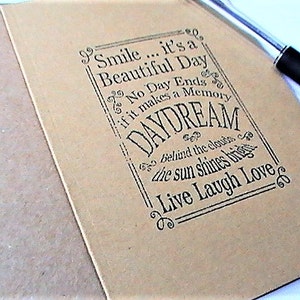 Smile ... it's a
Beautiful Day
No Day Ends
if it makes a Memory
DAYDREAM
Behind the clouds,
the sun shines bright.
Live Laugh Love